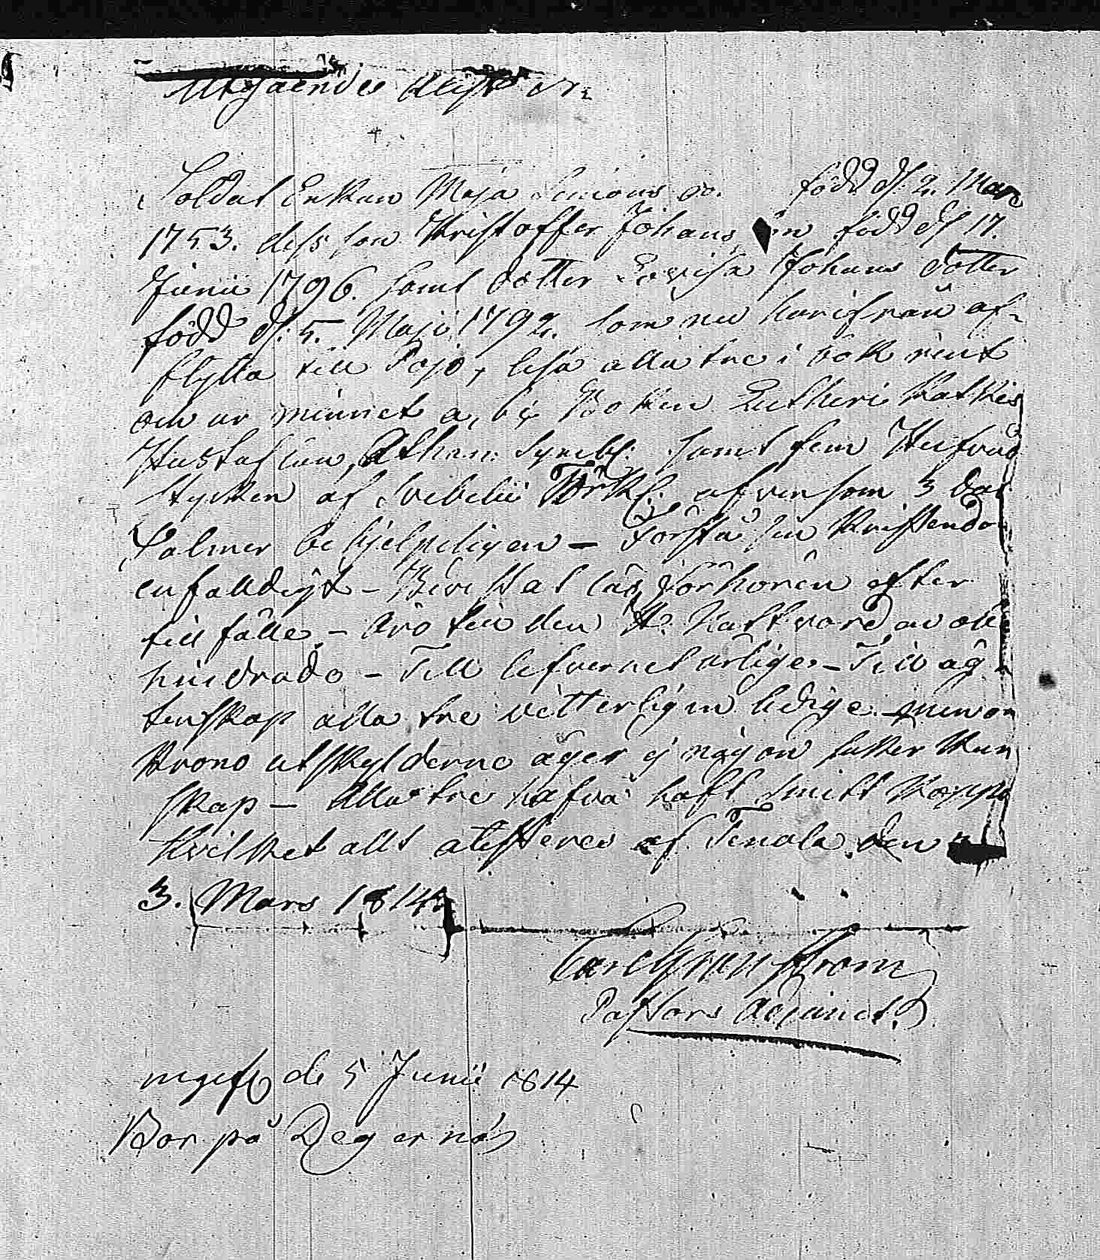 Utgående Attest N:
Soldat Enkan Maja Simons do. född d. 2. Mars
1753. dess son Kristoffer Johans son född d. 17.
Junii 1796. samt dotter Lovisa Johans dotter
född d. 5. Maji 1792. som nu härifrån af-
flytta till Pojo, läsa alla tre i bok rent
och ur minnet a, b, c, Boken Lutheri Katkes
Hustaflan, Athan. Symb. samt fem Hufvud
stycken af Svebelii Förkl. äfvensom 3 Dav.
Salmer behjelpeligen – Förstå sin Kristendom
enfaldigt – Bevistat läs förhören efter
tillfälle – Äro till den H. Nattvard av obe
hindrade – Till lefvernet ärlige – Till äg
tenskap alla tre vitterligen ledige – men om
Krono utskylderne äger ej någon säker kun
skap – Alla tre hafva haft smitt koppor
Hvilket allt attesteres af Tenala den
3. Mars 1814.
Carl Granström
Pastors Adjunct.
ingift de 5 Junii 1814
Bor på Degernäs